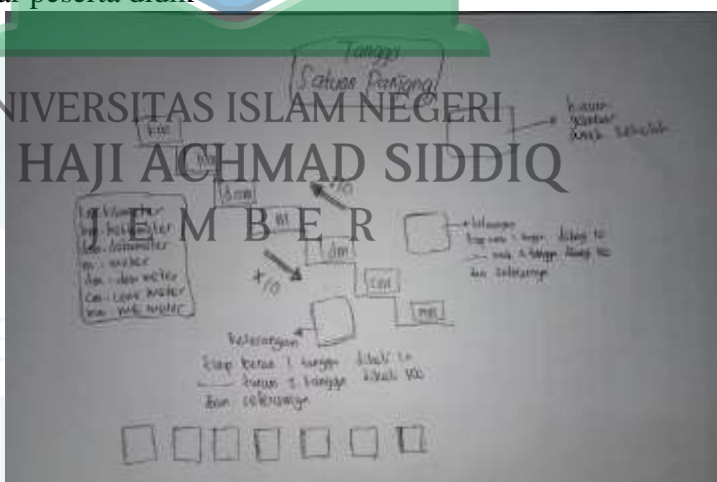 ar peserta didik
Tangga
Satuan Panjang
UNIVERSITAS ISLAM NEGERI
HAJI ACHMAD SIDDIQ
JEMBER
km
hm
dam
m
dm
cm
mm
km: kilometer
hm: hektometer
dam: dekameter
m: meter
dm: desimeter
cm: centimeter
mm: milimeter
gambar
anak sekolah
keterangan
tiap naik 1 tangga dibagi 10
naik 2 tangga dibagi 100
dan seterusnya
keterangan
tiap turun 1 tangga dikali 10
turun 2 tangga dikali 100
dan seterusnya